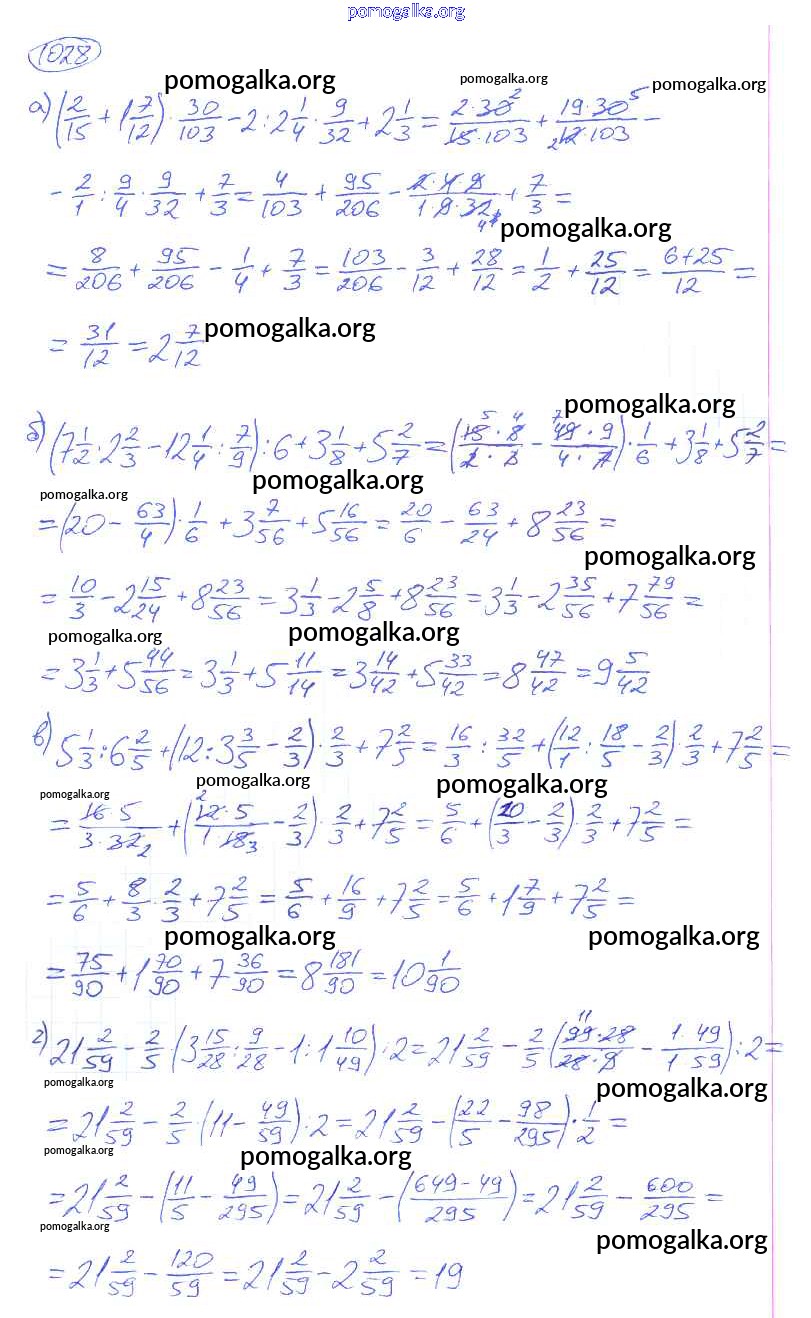 pomogalka.org
1028
pomogalka.org pomogalka.org pomogalka.org
а) (2/15 + 1 7/12) · 30/103 − 2 : 2 1/4 · 9/32 + 2 1/3 = 2·30/15·103 + 19·30/12·103 −
− 2/1 : 9/4 · 9/32 + 7/3 = 4/103 + 95/206 − 2·4·9/1·9·32 + 7/3 =
pomogalka.org
= 8/206 + 95/206 − 1/4 + 7/3 = 103/206 − 3/12 + 28/12 = 1/2 + 25/12 = 6+25/12 =
= 31/12 = 2 7/12 pomogalka.org
pomogalka.org
б) (7 1/2 · 2 2/3 − 12 1/4 : 7/9) : 6 + 3 1/8 + 5 2/7 = (15·8/2·3 − 49·9/4·7) · 1/6 + 3 1/8 + 5 2/7 =
pomogalka.org pomogalka.org
= (20 − 63/4) · 1/6 + 3 7/56 + 5 16/56 = 20/6 − 63/24 + 8 23/56 =
pomogalka.org
= 10/3 − 2 15/24 + 8 23/56 = 3 1/3 − 2 5/8 + 8 23/56 = 3 1/3 − 2 35/56 + 7 79/56 =
pomogalka.org pomogalka.org
= 3 1/3 + 5 44/56 = 3 1/3 + 5 11/14 = 3 14/42 + 5 33/42 = 8 47/42 = 9 5/42
в) 5 1/3 : 6 2/5 + (12 : 3 3/5 − 2/3) · 2/3 + 7 2/5 = 16/3 : 32/5 + (12/1 : 18/5 − 2/3) · 2/3 + 7 2/5 =
pomogalka.org pomogalka.org pomogalka.org
= 16·5/3·32 + (12·5/1·18 − 2/3) · 2/3 + 7 2/5 = 5/6 + (10/3 − 2/3) · 2/3 + 7 2/5 =
= 5/6 + 8/3 · 2/3 + 7 2/5 = 5/6 + 16/9 + 7 2/5 = 5/6 + 1 7/9 + 7 2/5 =
pomogalka.org pomogalka.org
= 75/90 + 1 70/90 + 7 36/90 = 8 181/90 = 10 1/90
г) 21 2/59 − 2/5 · (3 15/28 : 9/28 − 1 : 1 10/49) : 2 = 21 2/59 − 2/5 (99·28/28·9 − 1·49/1·59) : 2 =
pomogalka.org pomogalka.org
= 21 2/59 − 2/5 · (11 − 49/59) · 2 = 21 2/59 − (22/5 − 98/295) · 1/2 =
pomogalka.org pomogalka.org
= 21 2/59 − (11/5 − 49/295) = 21 2/59 − (649−49/295) = 21 2/59 − 600/295 =
pomogalka.org pomogalka.org
= 21 2/59 − 120/59 = 21 2/59 − 2 2/59 = 19